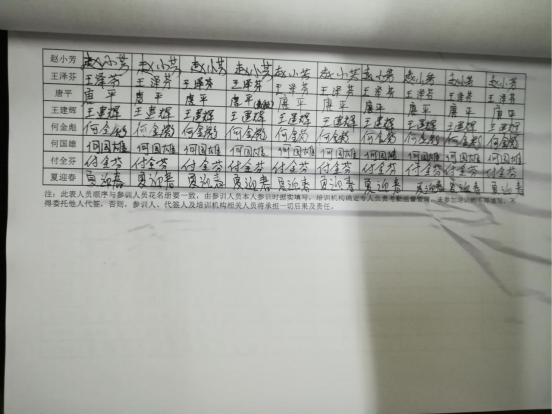 赵小芳 赵小芳 赵小芳 赵小芳 赵小芳 赵小芳 赵小芳 赵小芳 赵小芳 赵小芳 赵小芳
王泽芬 王泽芬 王泽芬 王泽芬 王泽芬 王泽芬 王泽芬 王泽芬 王泽芬 王泽芬 王泽芬
唐平 唐平 唐平 唐平 唐平 唐平 唐平 唐平 唐平 唐平 唐平
王建辉 王建辉 王建辉 王建辉 王建辉 王建辉 王建辉 王建辉 王建辉 王建辉 王建辉
何金彪 何金彪 何金彪 何金彪 何金彪 何金彪 何金彪 何金彪 何金彪 何金彪 何金彪
何国雄 何国雄 何国雄 何国雄 何国雄 何国雄 何国雄 何国雄 何国雄 何国雄 何国雄
付全芬 付全芬 付全芬 付全芬 付全芬 付全芬 付全芬 付全芬 付全芬 付全芬 付全芬
夏迎春 夏迎春 夏迎春 夏迎春 夏迎春 夏迎春 夏迎春 夏迎春 夏迎春 夏迎春 夏迎春
注：此表人员顺序与参训人员花名册要一致，由参训人员本人参训时据实填写，培训机构确定专人负责考勤监督管理，未参加培训的不得填写，不
得委托他人代签，否则，参训人、代签人及培训机构相关人员将承担一切后果及责任。